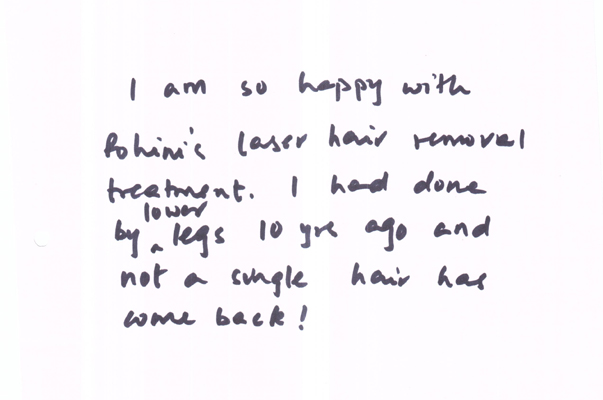 I am so happy with
Rohini's laser hair removal
treatment. I had done
by lower legs 10 yrs ago and
not a single hair has
come back!